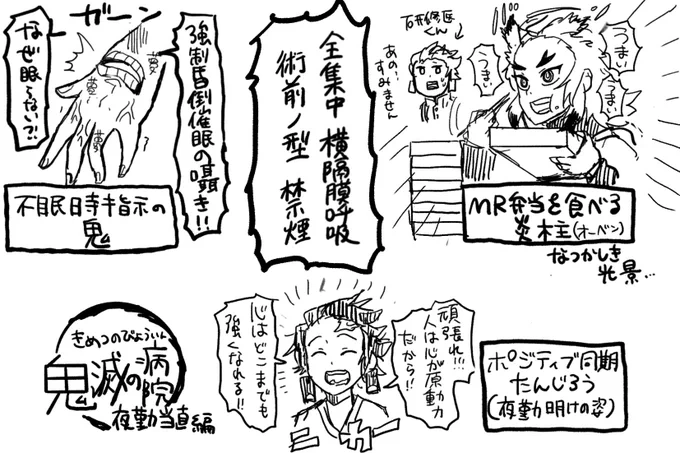 うまい
うまい
うまい
石井修医くん
あの!
すみません
MR弁当を食べる
炎柱(オーベン)
なつかしき
光景…
全集中 横隔膜呼吸
術前ノ型 禁煙
ガーン
強制昏倒催眠の囁き!!
なぜ眠らない?!
不眠時指示の
鬼
きめつのびょういん
鬼滅の病院
夜勤当直編
頑張れ!!!
人は心が原動力
だから!!
心はどこまでも
強くなれる!!
ポジティブ同期
たんじろう
(夜勤明けの姿)